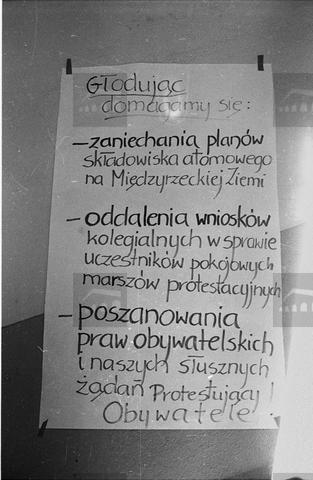 Głodując
domagamy się:
— zaniechania planów
składowiska atomowego
na Międzyrzeckiej Ziemi
— oddalenia wniosków
kolegialnych w sprawie
uczestników pokojowych
marszów protestacyjnych
— poszanowania
praw obywatelskich
i naszych słusznych
żądań Protestujący
Obywatele!